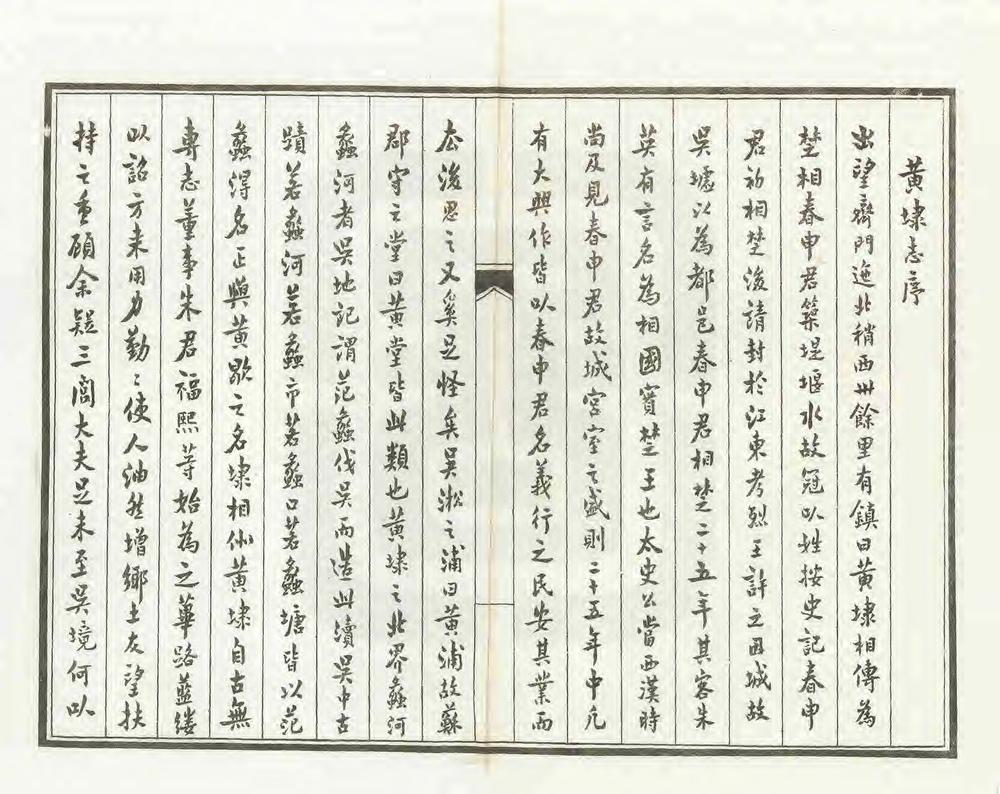 黃埭志序
出望齊門迤北稍西卅餘里有鎮曰黃埭相傳為
楚相春申君築堤堰水故冠以姓按史記春申
君初相楚後請封於江東考烈王許之因城故
吳墟以為都邑春申君相楚二十五年其客朱
英有言名為相國實楚王也太史公當西漢時
尚及見春申君故城宮室之盛則二十五年中凡
有大興作皆以春申君名義行之民安其業而
去後思之又奚足怪矣吳淞之浦曰黃浦故蘇
郡守之堂曰黃堂皆此類也黃埭之北界蠡河
蠡河者吳地記謂范蠡伐吳而造此瀆吳中古
蹟若蠡河若蠡市若蠡口若蠡塘皆以范
蠡得名正與黃歇之名埭相似黃埭自古無
專志董事朱君福熙等始為之蓽路藍縷
以詔方來用力勤勤使人油然增鄉土友望扶
持之重顧余疑三閭大夫足未至吳境何以